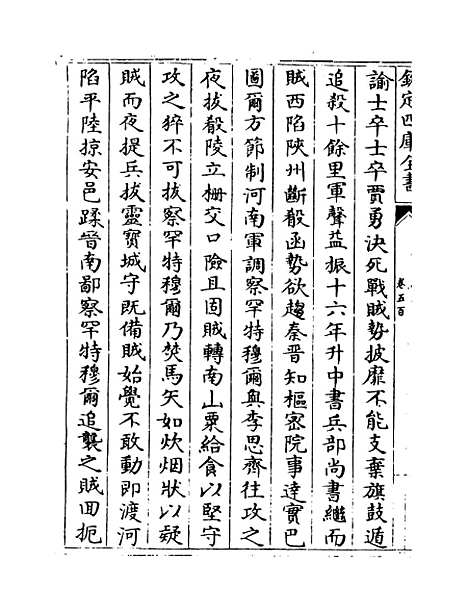 欽定四庫全書
卷五百
諭士卒士卒賈勇決死戰賊勢披靡不能支棄旗鼓遁
追殺十餘里軍聲益振十六年升中書兵部尚書繼而
賊西陷陝州斷殽函勢欲趨秦晉知樞密院事達實巴
圖爾方節制河南軍調察罕特穆爾與李思齊往攻之
夜拔殽陵立柵交口險且固賊轉南山粟給食以堅守
攻之猝不可拔察罕特穆爾乃焚馬矢如炊烟狀以疑
賊而夜提兵拔靈寶城守既備賊始覺不敢動即渡河
陷平陸掠安邑蹂晉南鄙察罕特穆爾追襲之賊回扼